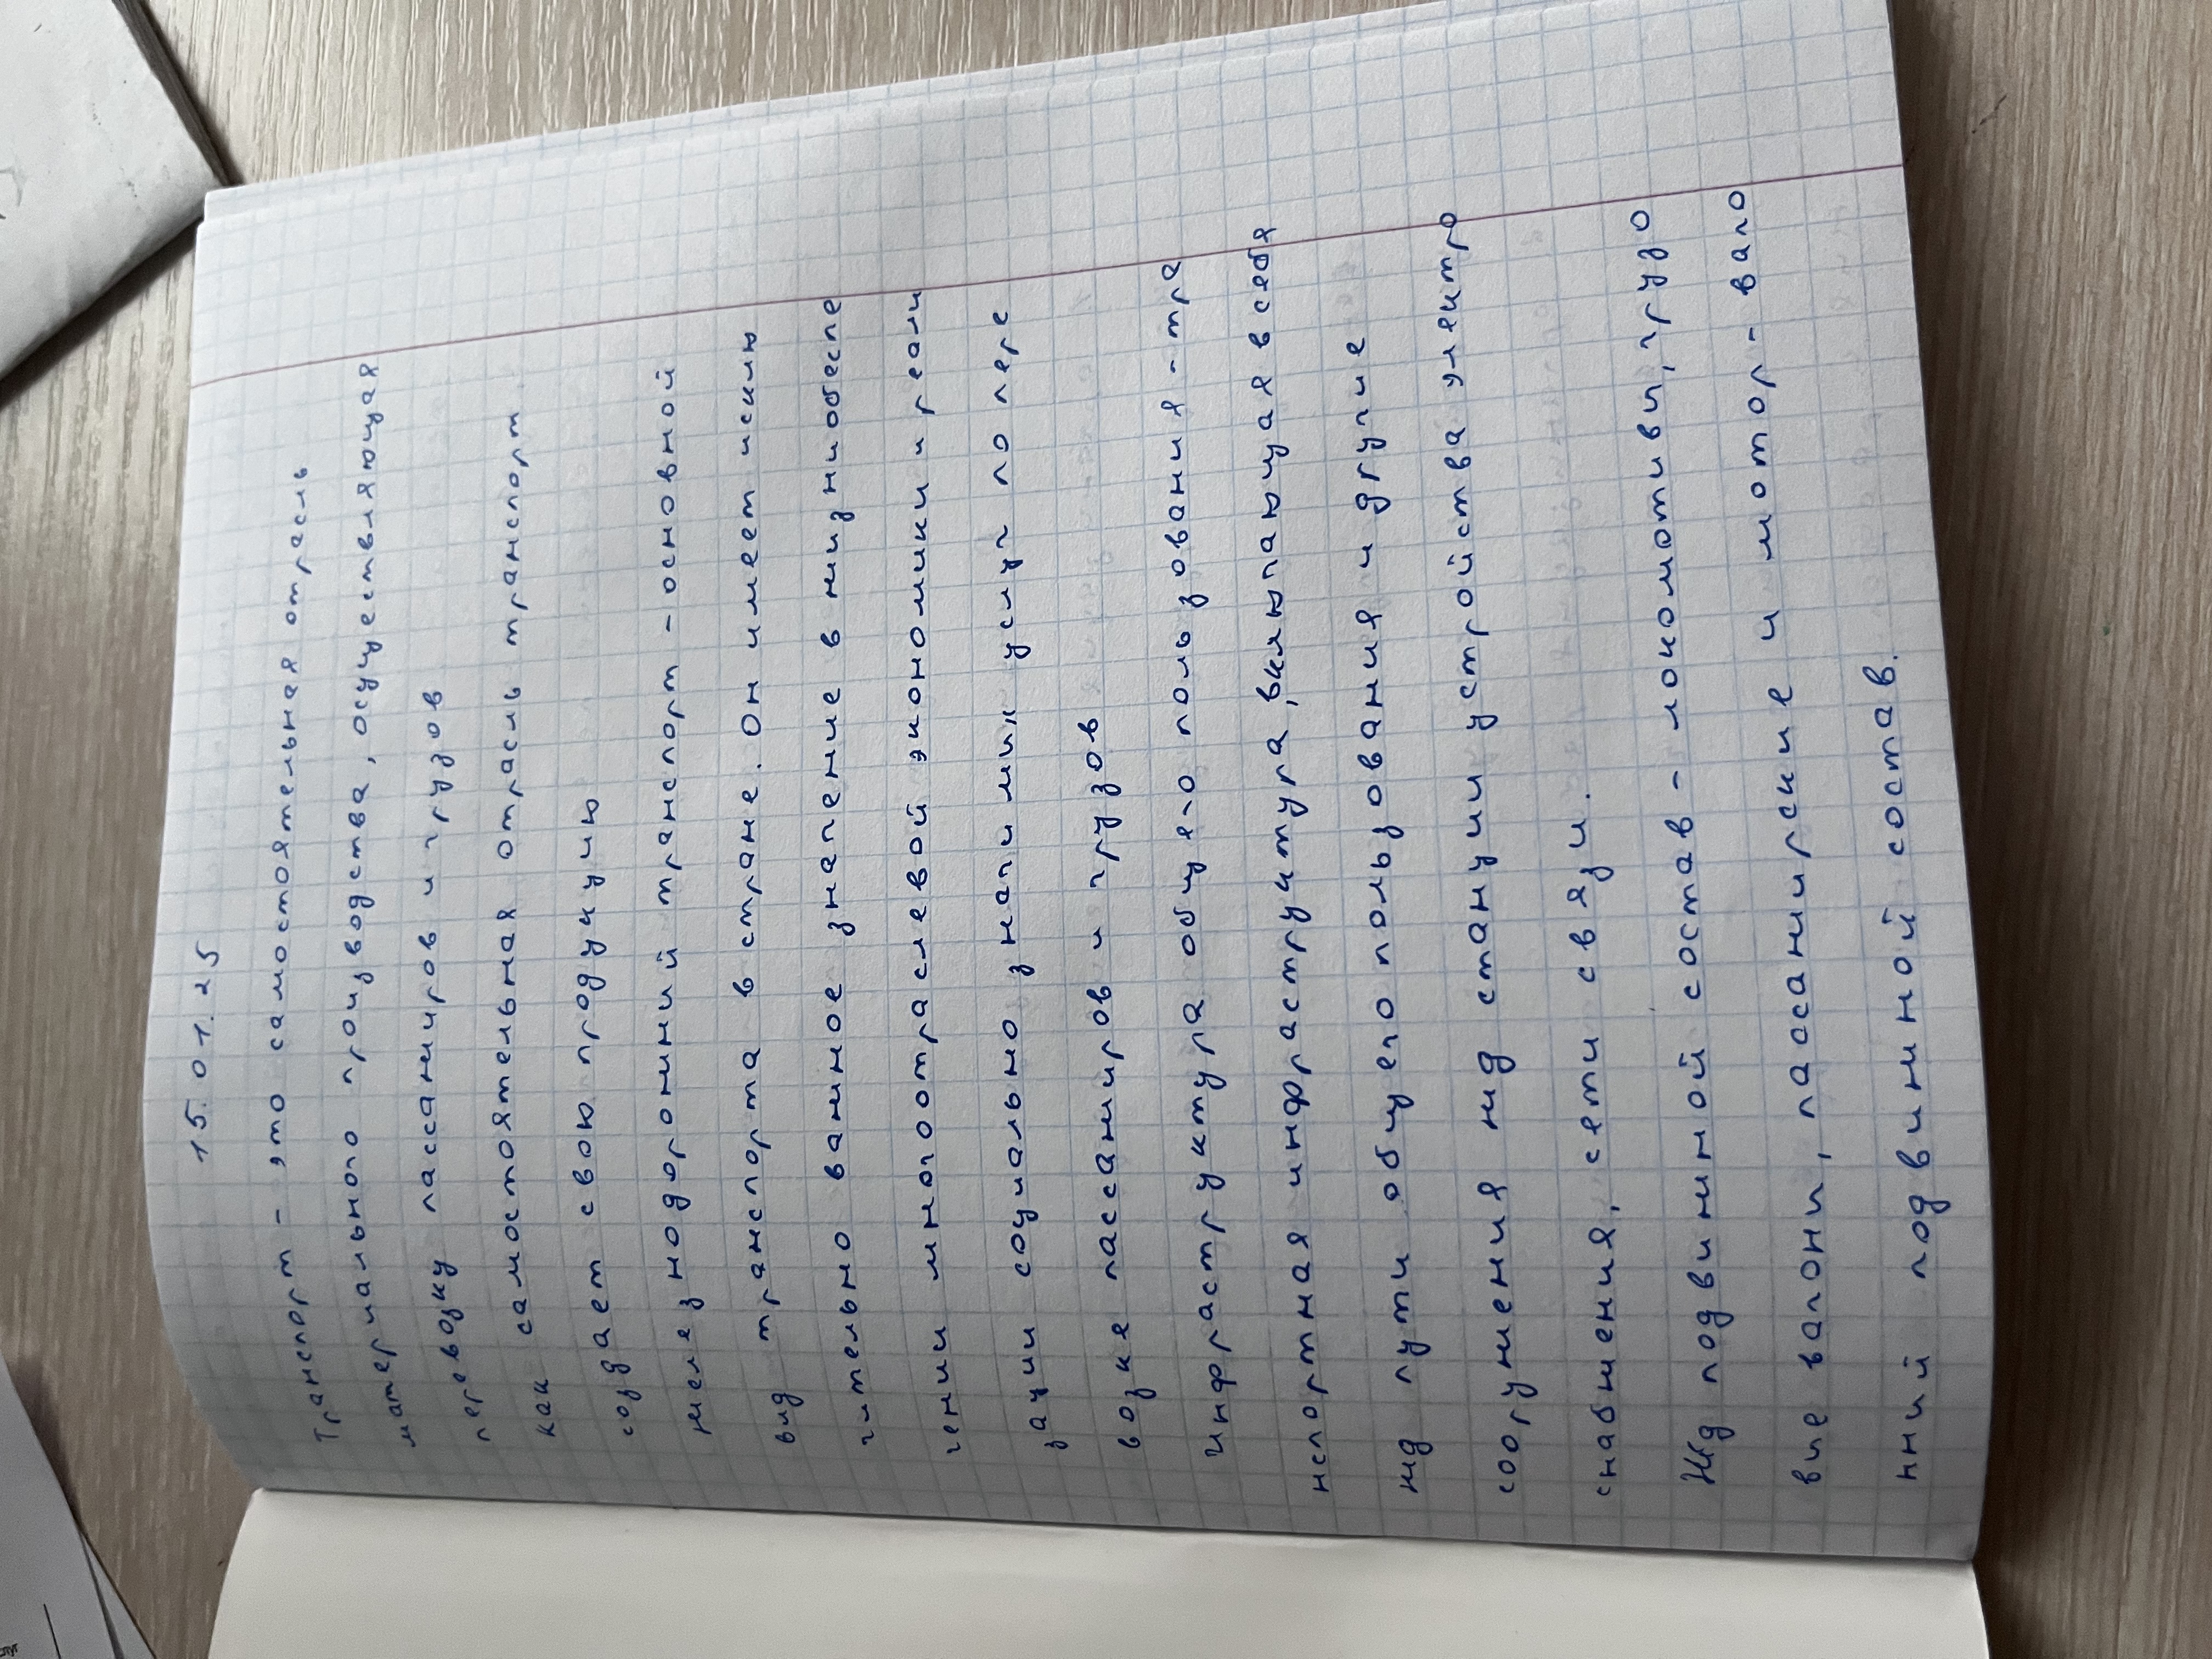 15.01.25
Транспорт - это самостоятельная отрасль
материального производства, осуществляющая
перевозку пассажиров и грузов
как самостоятельная отрасль транспорт
создает свою продукцию
железнодорожний транспорт - основной
вид транспорта в стране. Он имеет исклю
чительно важное значение в жизниобеспе
чении многоотраслевой экономики и реали
зации социально значимих услуг по пере
возке пассажиров и грузов
Инфраструктура общего пользования - тра
нспортная инфраструктура, включающая в себя
жд пути общего пользования и другие
сооружения жд станции устройства электро
снабжения, сети связи.
Жд подвижной состав - локомотиви, грузо
вие вагони, пассажирские и мотор-ваго
нний подвижной состав.